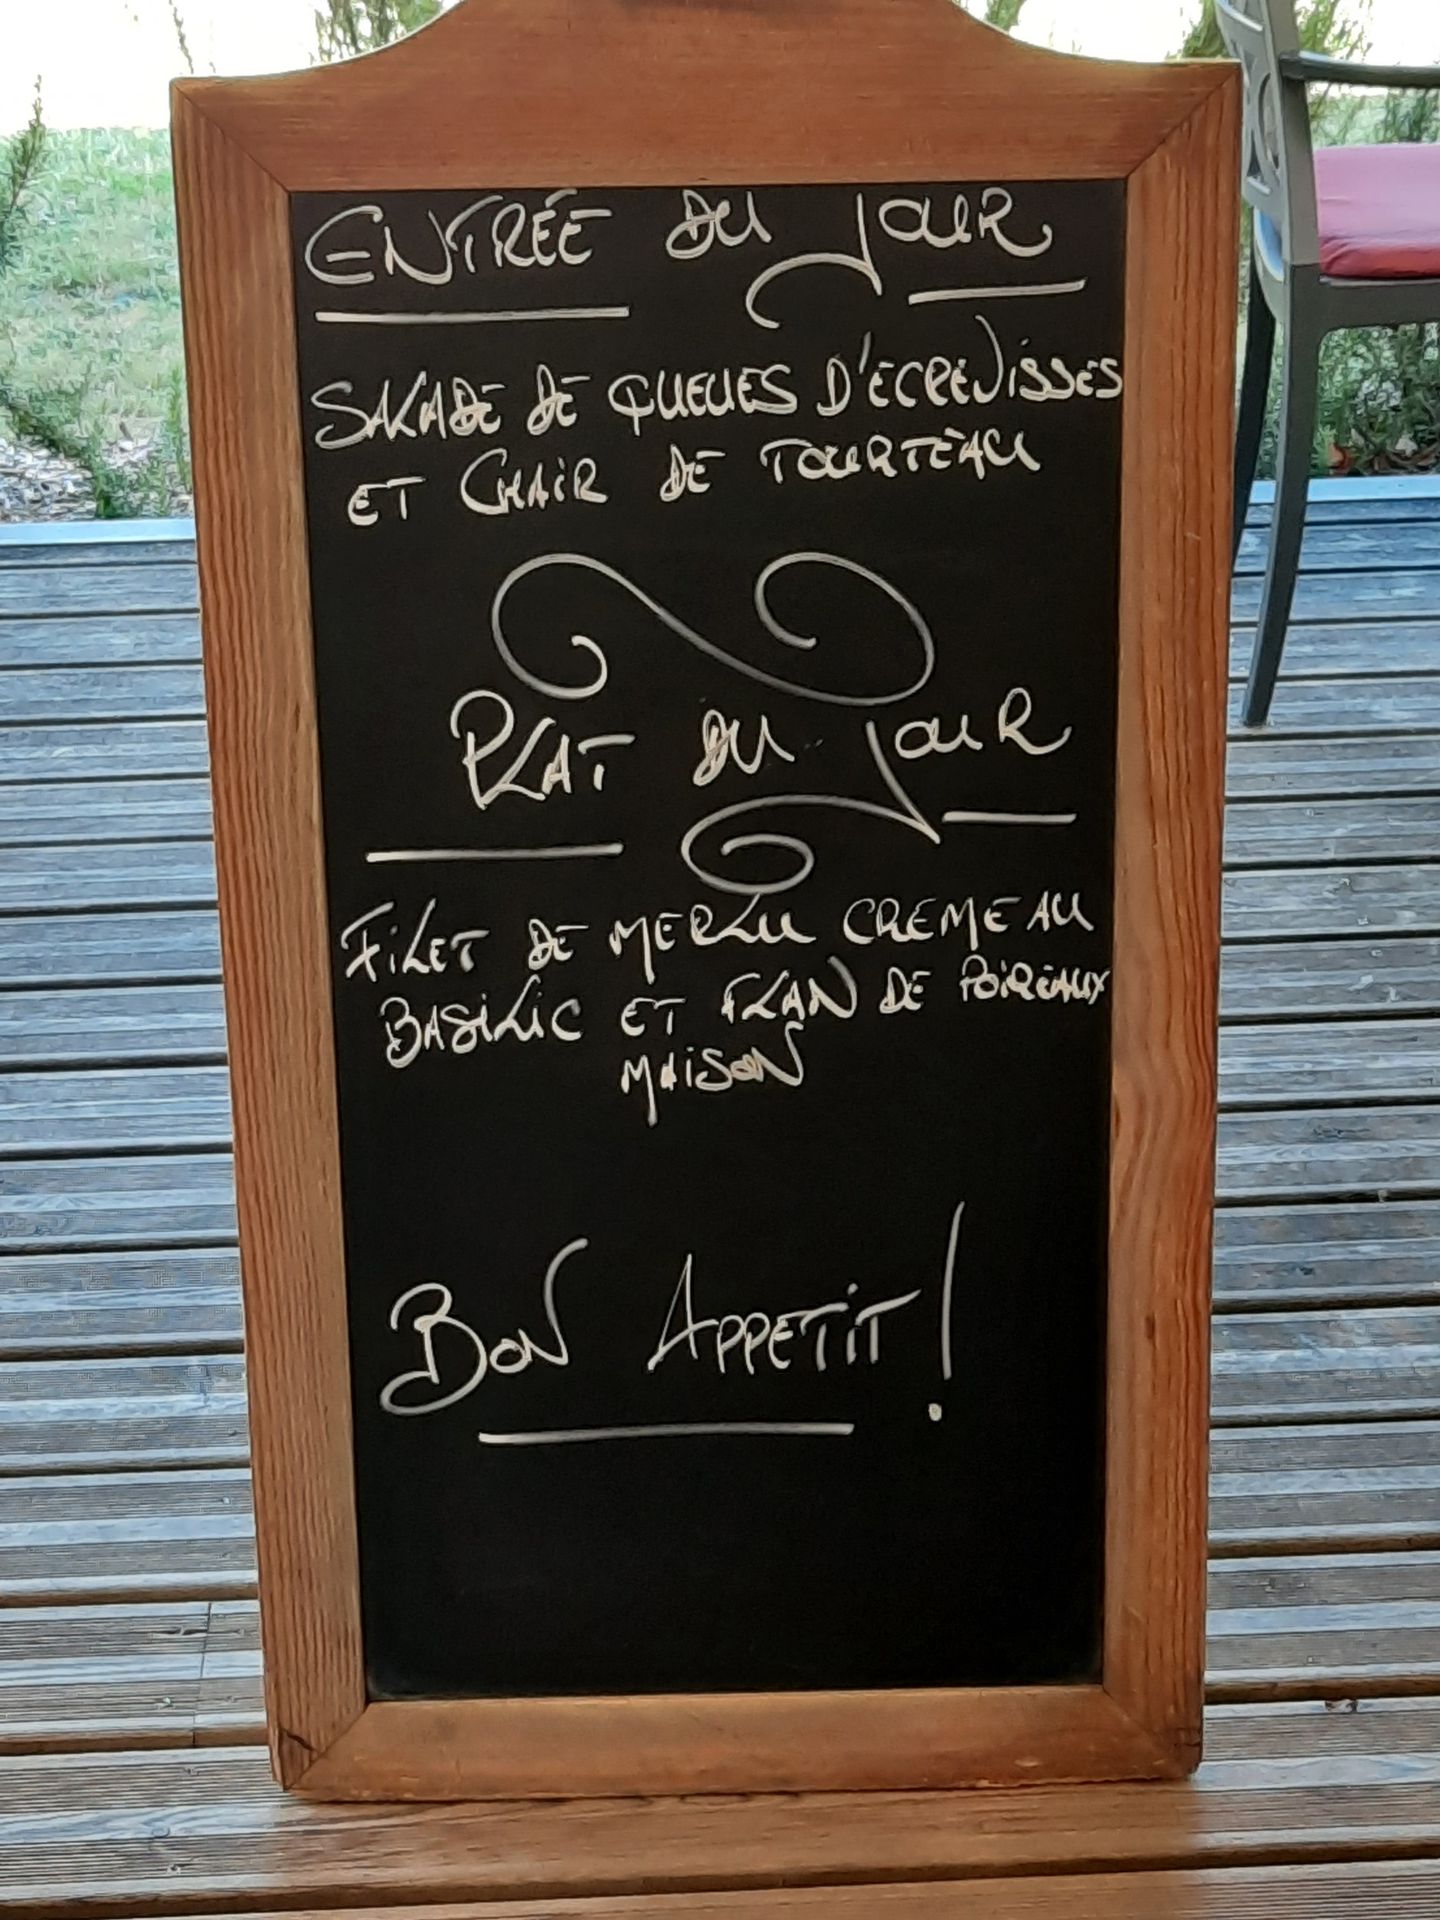 ENTRÉE DU JOUR
SALADE DE QUEUES D'ECREVISSES
ET CHAIR DE TOURTEAU
PLAT DU JOUR
FILET DE MERLU CREME AU
BASILIC ET FLAN DE POIREAUX
MAISON
BON APPETIT !